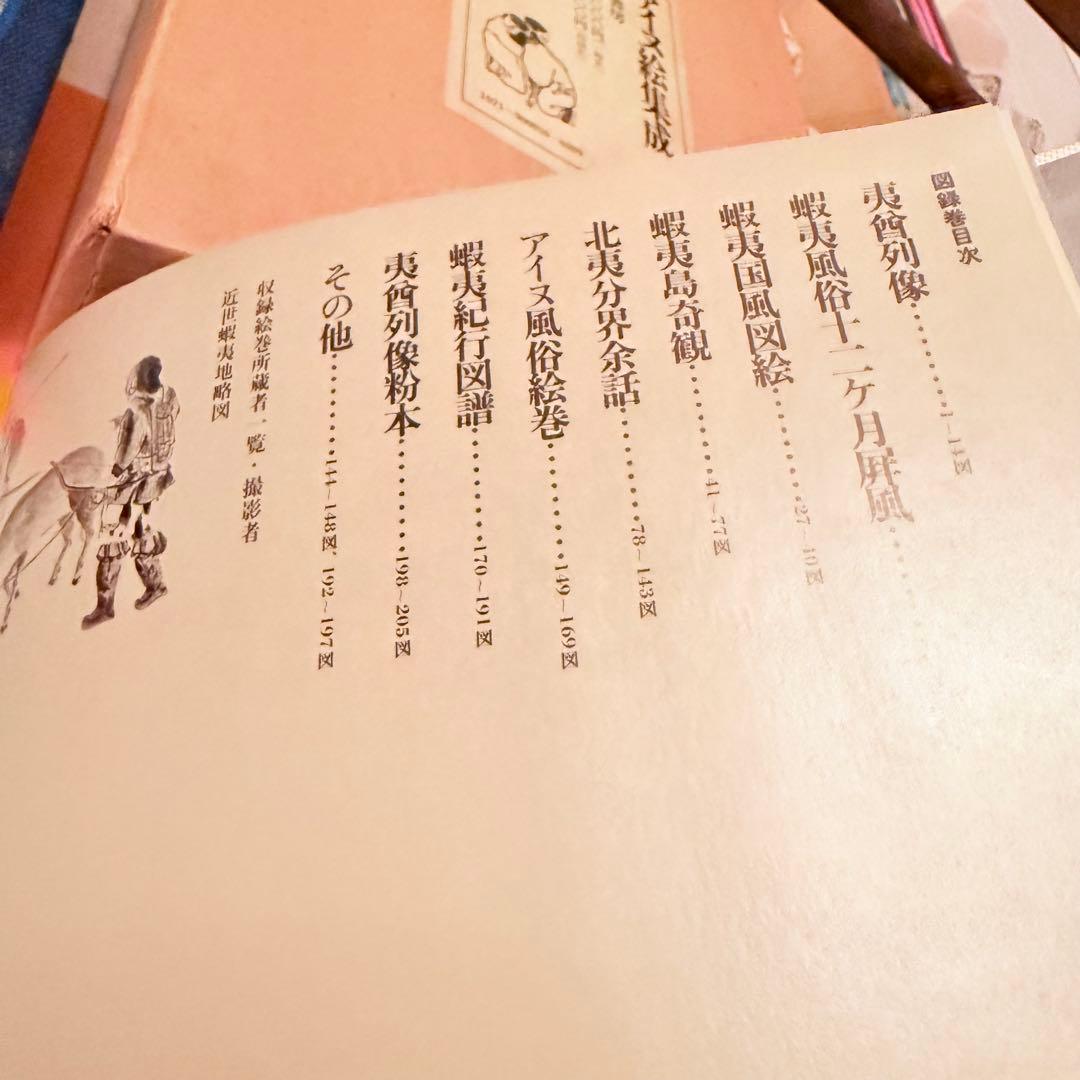 図録巻目次
夷酋列像………1~14図
蝦夷風俗十二ケ月屛風……
蝦夷国風図絵………27~40図
蝦夷島奇観………41~77図
北夷分界余話………78~143図
アイヌ風俗絵巻………149~169図
蝦夷紀行図譜………170~191図
夷酋列像粉本………198~205図
その他………144~148図, 192~197図
収録絵巻所蔵者一覧・撮影者
近世蝦夷地略図
アイヌ絵集成